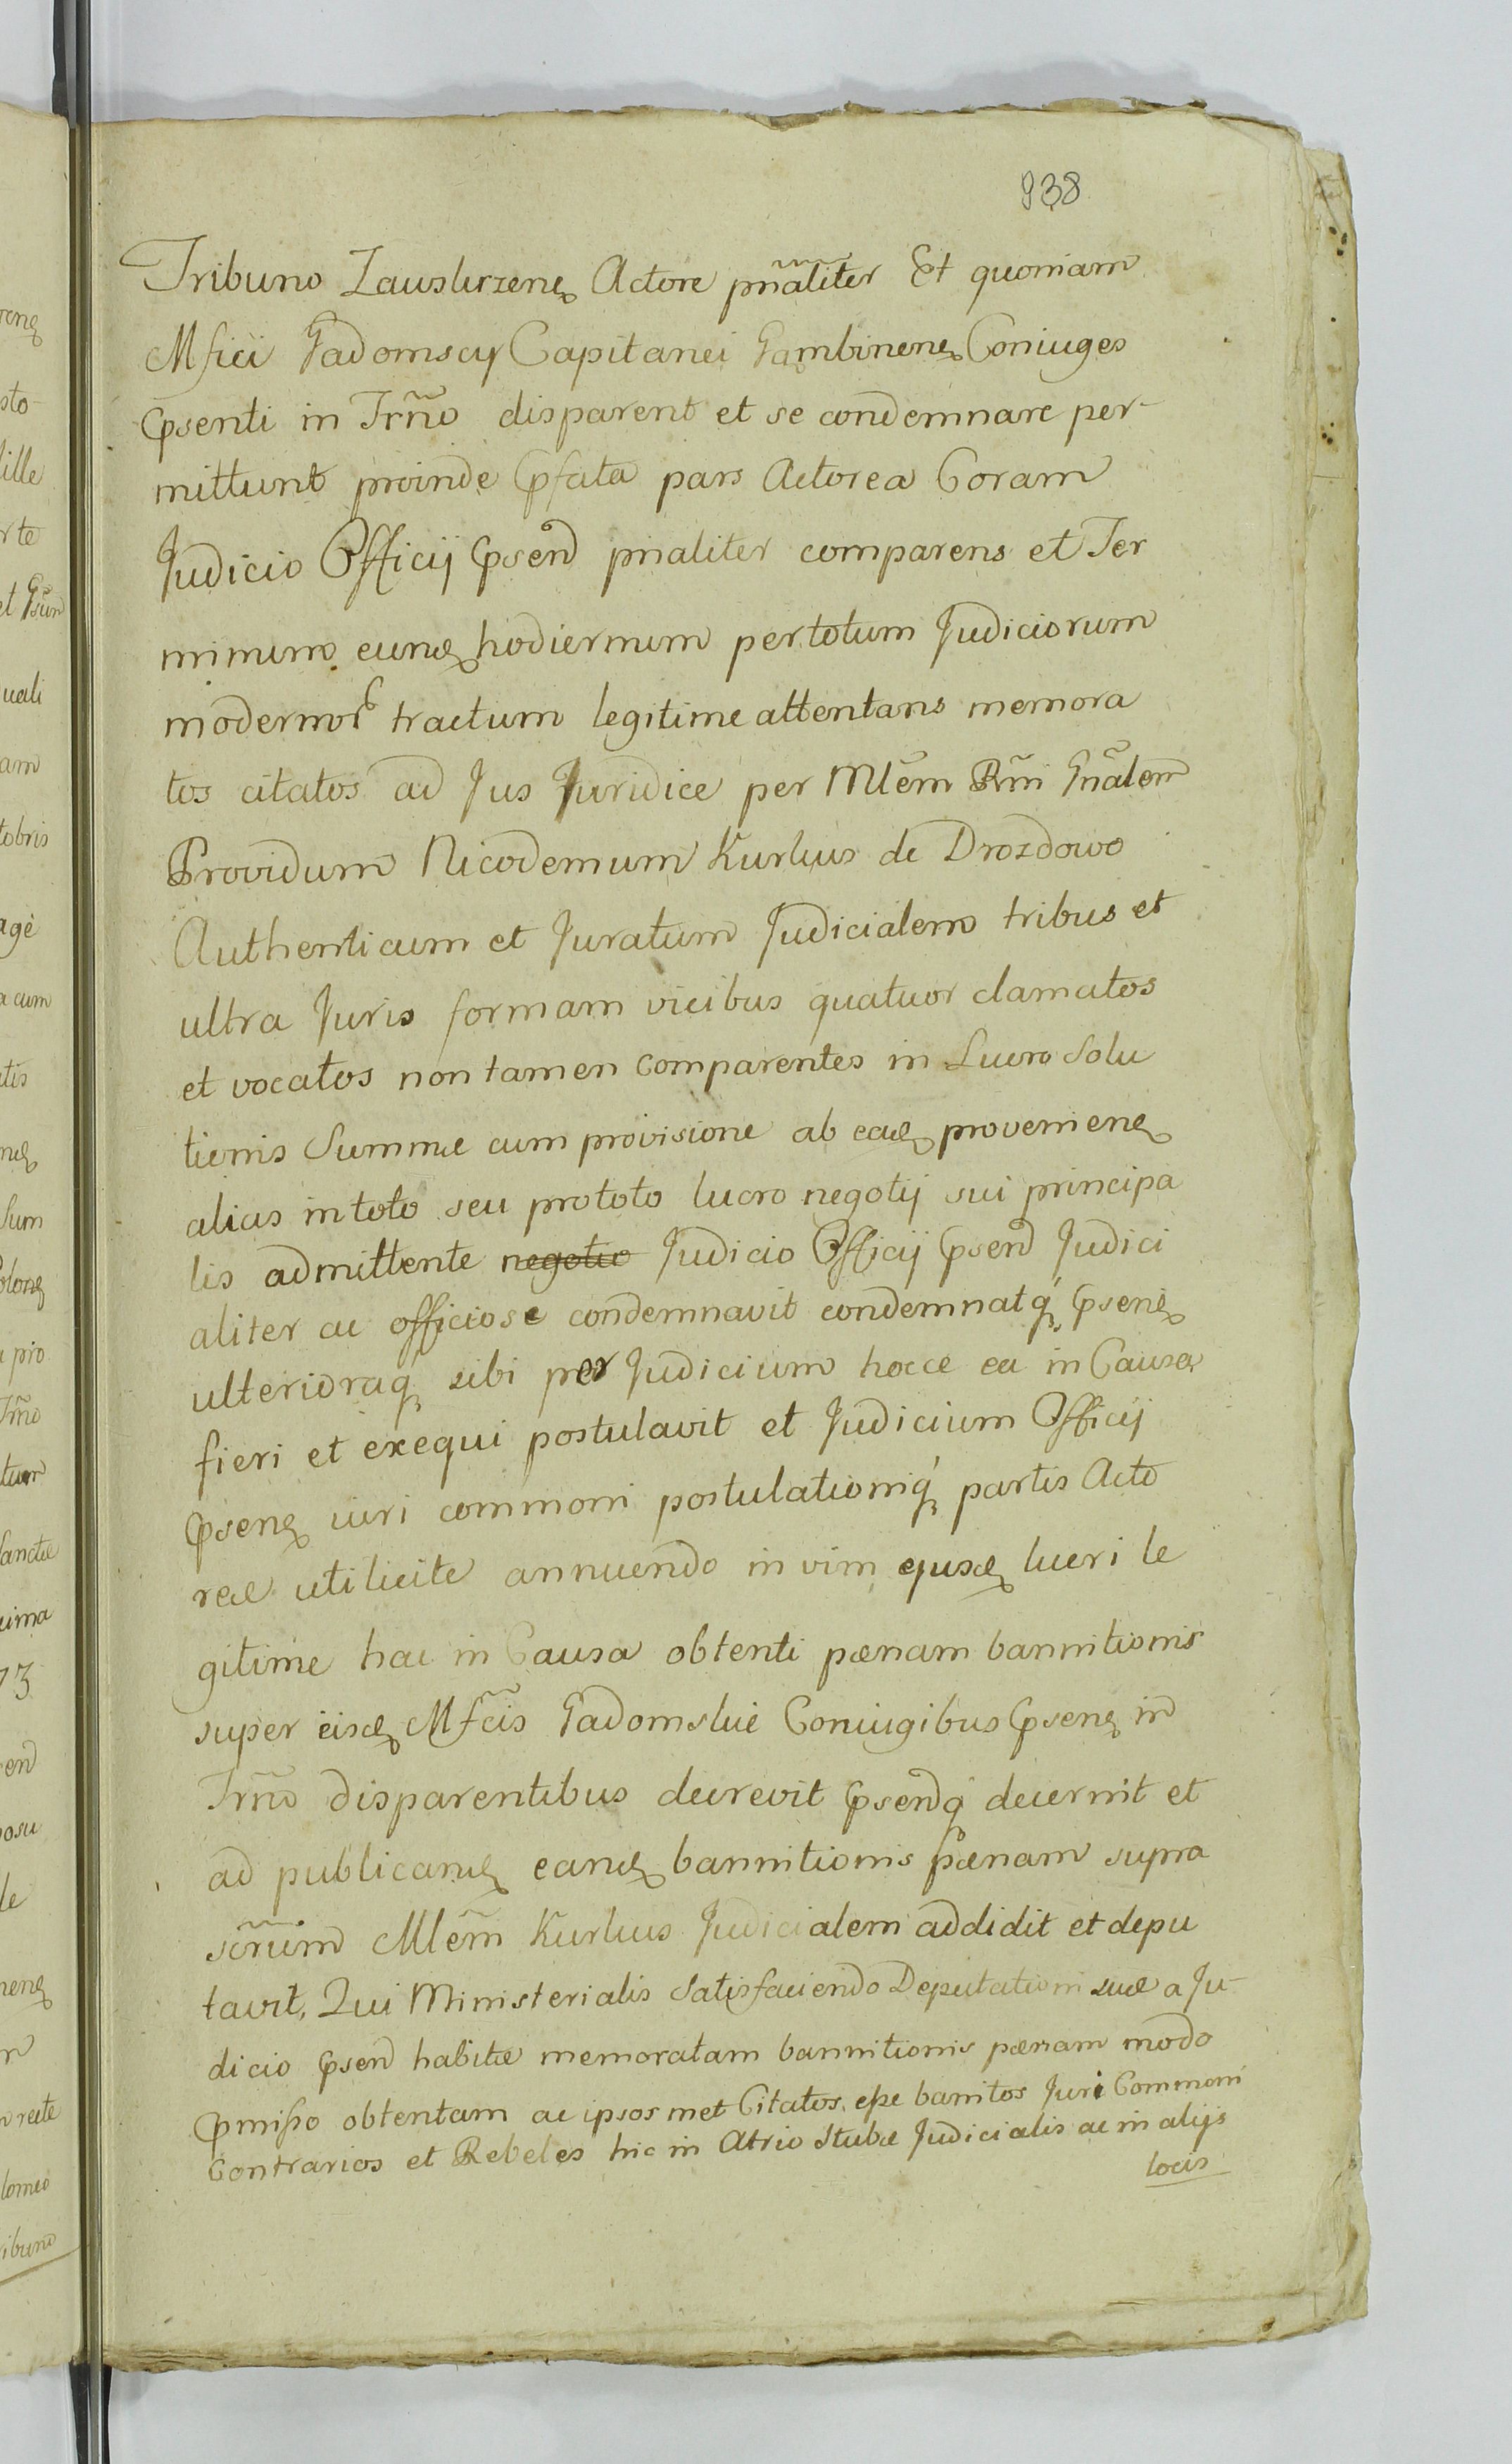 938
Tribuno Zauskrzenȩ Actore pn̄aliter Et quoniam
Mfici Gadomscy Capitanei Gąmbinenȩ Coniuges
Psenti in Trn̄o disparent et se condemnare per-
mittunt proinde Pfata pars Actorea Coram
Judicio Officij Psend pnaliter comparens et Ter
minum eunđ hodiernum pertotum Judiciorum
modernor tractum legitime attentans memora
tos citatos ad Jus Juridice per Mlem̄ Rn̄i Gn̄alem
Providum Nicodemum Kurkus de Drozdowo
Authenticum et Juratum Judicialem tribus et
ultra Juris formam vicibus quatuor clamatos
et vocatos non tamen comparentes in Lucro Solu
tionis Summæ cum provisione ab eađ provenienȩ
alias in toto seu prototo lucro negotij sui principa
lis admittente negotio Judicio Officij Psend Judici
aliter ac officiose condemnavit condemnatq́ Psenȩ
ulterioraq́ sibi per Judicium hocce ea in Causa
fieri et exequi postulavit et Judicium Officij
Psenȩ iuri commoni postulationiq́ partis Acto
reæ uti licite annuendo in vim ejusđ lucri le
gitime hac in Causa obtenti pænam bannitionis
super eisđ Mfcis Gadomskie Coniugibus Psenȩ in
Trn̄o disparentibus decrevit Psendq decernit et
ad publicanđ eanđ bannitionis Pænam supra
scrium̄ Mlem̄ Kurkus Judicialem addidit et depu
tavit, Qui Ministerialis Satisfaciendo Deputationi suæ a Ju-
dicio Psend habitæ memoratam bannitionis pænam modo
Pmißo obtentam ac ipsos met Citatos eße banitos Juri Commoni
Contrarios et Rebeles hic in Atrio Stubæ Judicialis ac in alijs
locis